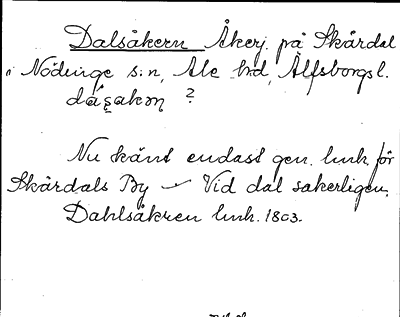 Dalsåkern Åkerj. på Skårdal
i Nödinge s:n, Ale hd, Älfsborgs l.
dáşakɷn ?
Nu känt endast gen. lmh. för
Skårdals By – Vid dal sakerligen.
Dahlsåkren lmh. 1803.